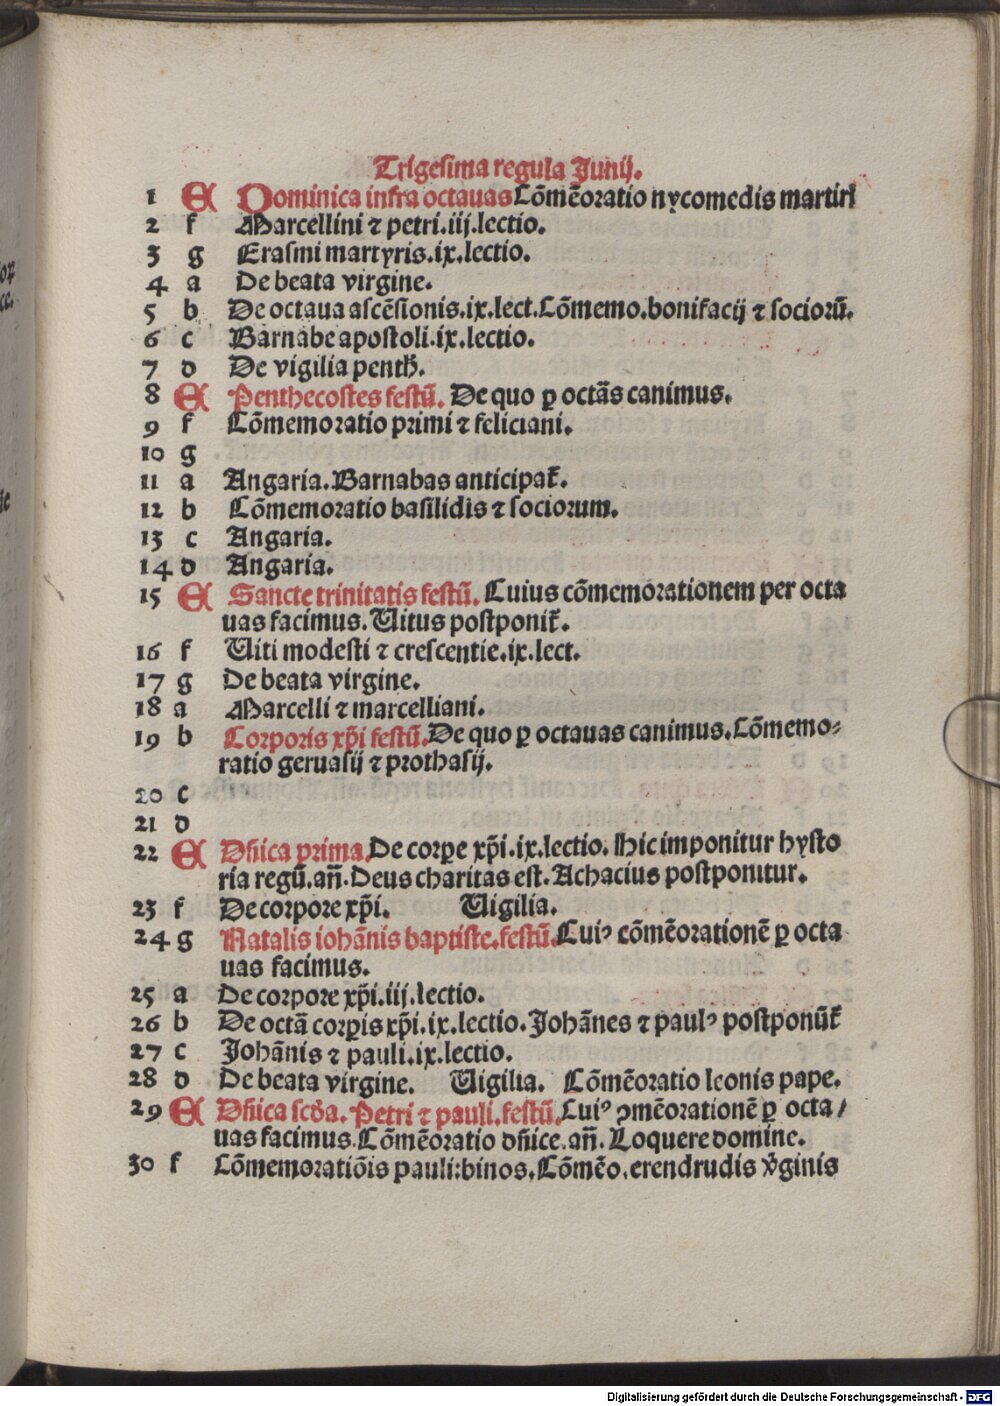 Trigesima regula Junij.
1 E Dominica infra octauas Cōmēoratio nycomedis martiri
2 f Marcellini ⁊ petri.iij.lectio.
3 g Erasmi martyris.ix.lectio.
4 a De beata virgine.
5 b De octaua ascēsionis.ix.lect.Cōmemo.bonifacij ⁊ socioꝝ̄.
6 c Barnabe apostoli.ix.lectio.
7 d De vigilia penth̄.
8 E Penthecostes festū. De quo ꝑ octās canimus.
9 f Cōmemoratio primi ⁊ feliciani.
10 g
11 a Angaria.Barnabas anticipat̄.
12 b Cōmemoratio basilidis ⁊ sociorum.
13 c Angaria.
14 d Angaria.
15 E Sancte trinitatis festū. Cuius cōmemorationem per octa
uas facimus. Uitus postponit̄.
16 f Uiti modesti ⁊ crescentie.ix.lect.
17 g De beata virgine.
18 a Marcelli ⁊ marcelliani.
19 b Corporis xp̄i festū.De quo ꝑ octauas canimus.Cōmemo-
ratio geruasij ⁊ prothasij.
20 c
21 d
22 E Dn̄ica prima.De corꝑe xp̄i.ix.lectio. Hic imponitur hysto
ria regū.an̄.Deus charitas est.Achacius postponitur.
23 f De corpore xp̄i. Uigilia.
24 g Natalis iohānis baptiste.festū.Cuiꝰ cōmēorationē ꝑ octa
uas facimus.
25 a De corpore xp̄i.iij.lectio.
26 b De octā corꝑis xp̄i.ix.lectio.Johānes ⁊ paulꝰ postponūt̄
27 c Johānis ⁊ pauli.ix.lectio.
28 d De beata virgine. Uigilia. Cōmēoratio leonis pape.
29 E Dn̄ica scd̄a. Petri ⁊ pauli.festū.Cuiꝰ ꝯmēorationē ꝑ octa/
uas facimus.Cōmēoratio dn̄ice.an̄. Loquere domine.
30 f Cōmemoratiōis pauli:binos.Cōmēo.erendrudis v̄ginis
Digitalisierung gefördert durch die Deutsche Forschungsgemeinschaft - DFG